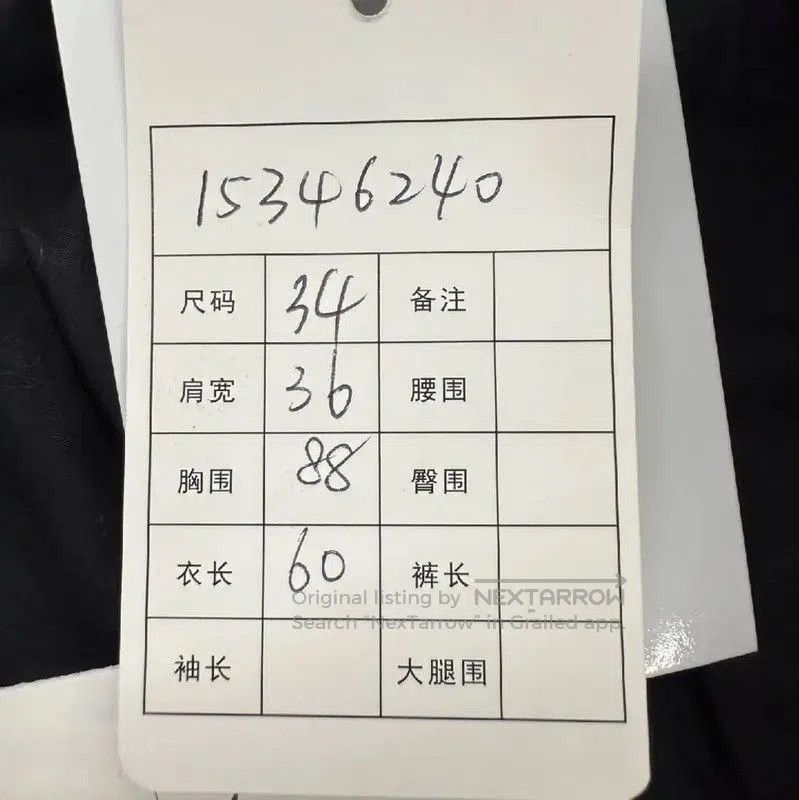 15346240
尺码 34 备注
肩宽 36 腰围
胸围 88 臀围
衣长 60 裤长
Original listing by NEXTARROW
Search "NexTarrow" in Grailed app.
袖长 大腿围